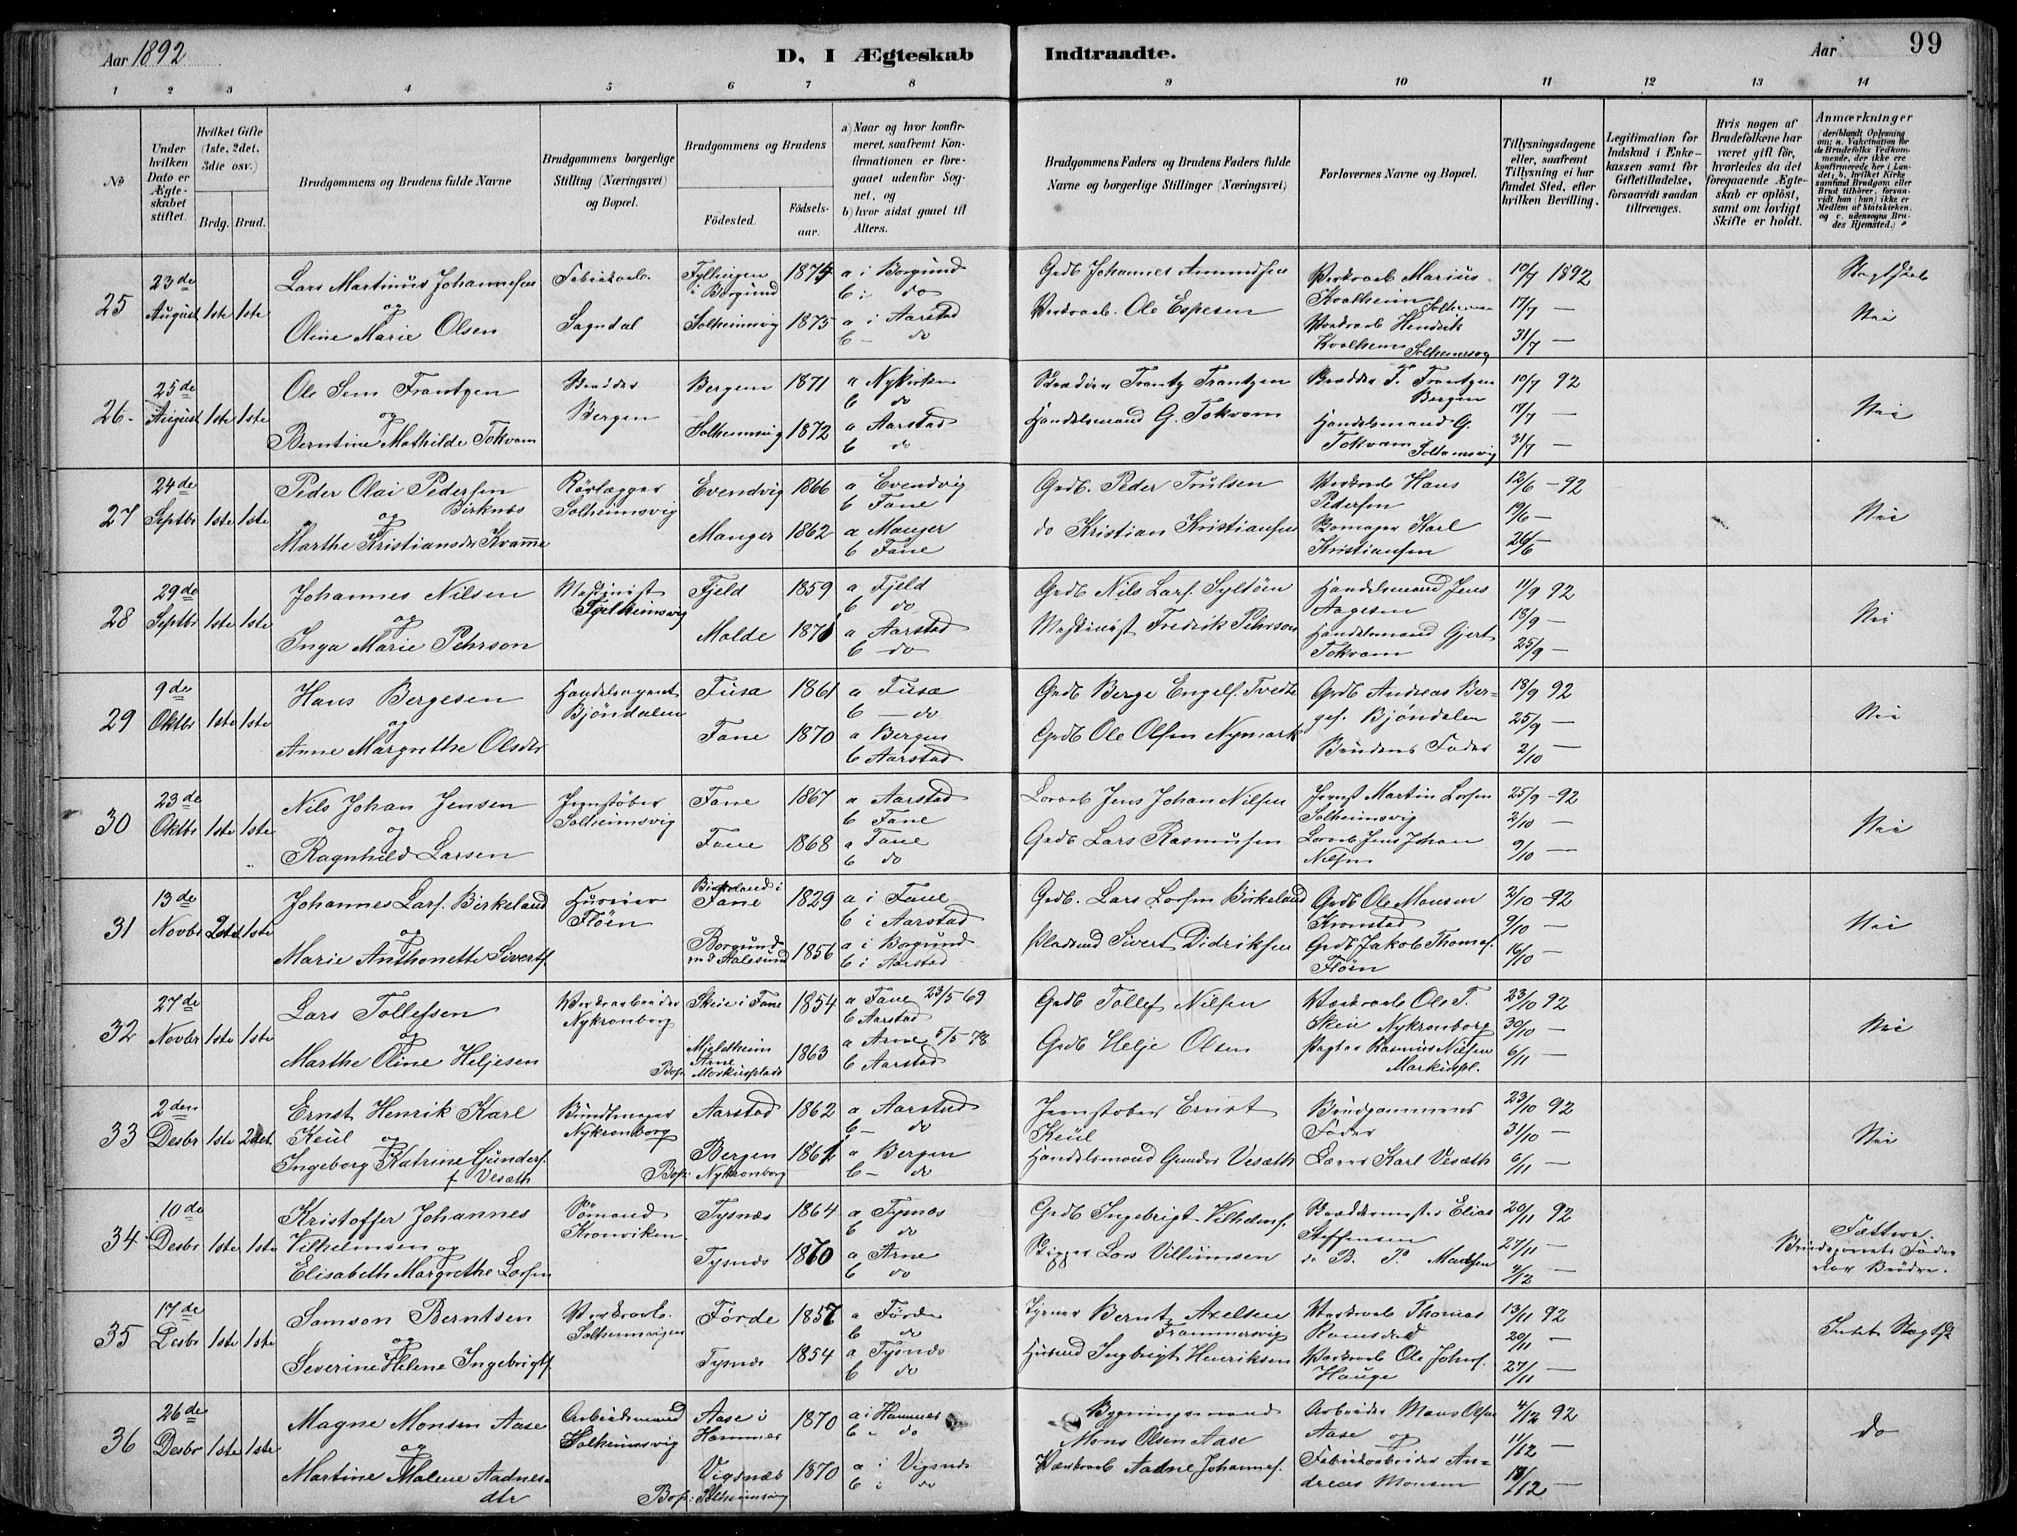 Aar 1892
D, I Ægteskab
Indtraadte.
Aar
99
1 2 3 4 5 6 7 8 9 10 11 12 13 14
No
Under hvilken Dato er Ægteskabet stiftet.
Hvilket Gifte (1ste, 2det, 3die osv.)
Brdg. Brud.
Brudgommens og Brudens fulde Navne
Brudgommens borgerlige Stilling (Næringsvei) og Bopæl.
Brudgommens og Brudens
Födested.
Födselsaar.
a) Naar og hvor konfirmeret, saafremt Konfirmationen er foregaaet udenfor Sognet, og
b) hvor sidst gaaet til Alters.
Brudgommens Faders og Brudens Faders fulde Navne og borgerlige Stillinger (Næringsvei)
Forlovernes Navne og Bopæl.
Tillysningsdagene eller, saafremt Tillysning ei har fundet Sted, efter hvilken Bevilling.
Legitimation for Indskud i Enkekassen samt for Giftetilladelse, forsaavidt saadan tiltrænges.
Hvis nogen af Brudefolkene har været gift før, hvorledes da det foregaaende Ægteskab er oplöst, samt om lovligt Skifte er holdt.
Anmærkninger (deriblandt Oplysning om: a. Vakcination for de Brudefolks Vedkommende, der ikke ere konfirmerede her i Landet; b. hvilket Kirkesamfund Brudgom eller Brud tilhörer, forsaavidt han (hun) ikke er Medlem af Statskirken. og c. udensogns Brudes Hjemsted.)
25 23de August 1ste 1ste
Lars Martinus Johannesen
og
Oline Marie Olsen
Fabrikarb.
Sagndal
i Borgund 1874 a i Borgund
b i do
Solheimsvig 1875 a i Aarstad
b — do
Grdb Johannes Amundsen
Verksarb. Ole Espesen
Verksarb Marius Kvalheim
Verksarb Hendrik Kvalheim Solheimsvig
10/7 1892
17/7 —
31/7 —
Nei
26 25de August 1ste 1ste
Ole Sem Frantzen
og
Berntine Mathilde Tokvam
Bergen
Bergen 1871 a Nykirken
b do
Solheimsvig 1872 a Aarstad
b do
Frantz Frantzen
Handelsmand G. Tokvam
F. Frantzen Bergen
Handelsmand G. Tokvam Solheimsvig
10/7 92
17/7 —
31/7 —
Nei
27 24de Septbr 1ste 1ste
Peder Olai Pedersen Birknes
og
Marthe Kristiansdr Kvamme
Rørlægger
Solheimsvig
Evendvig 1866 a Evendvig
b Fane
Manger 1862 a Manger
b Fane
Grdb. Peder Trulsen
do Kristian Kristiansen
Hans Pedersen
Karl Kristiansen
12/6 — 92
19/6 —
26/6
Nei
28 29de Septbr 1ste 1ste
Johannes Nilsen
og
Inga Marie Pehrson
Maskinist
Solheimsvig
Fjeld 1859 a Fjeld
b do
Molde 1871 a Aarstad
b — do
Grdb Nils Lars. Syltøen
Maskinist Fredrik Pehrson
Handelsmand Jens Aagesen
Handelsmand Gjert Tokvam
11/9 92
18/9 —
25/9 —
Nei
29 9de Oktbr 1ste 1ste
Hans Bergesen
og
Anne Margrethe Olsdr
Handelsagent
Bjöndalen
Fusa 1861 a Fusa
b — do
Fane 1870 a Bergen
b Aarstad
Grdb Berge Engels. Tvedte
Grdb Ole Olsen Nymark
Grdb Andreas Berges. Bjöndalen
Brudens Fader
18/9 92
25/9 —
2/10 —
Nei
30 23de Oktbr 1ste 1ste
Nils Johan Jensen
og
Ragnhild Larsen
Jernstøber
Solheimsvig
Fane 1867 a Aarstad
b Fane
Fane 1868 a Fane
b do
Jens Johan Nilsen
Grdb Lars Rasmusen
Jernst Martin Larsen
Solheimsvig
Jens Johan Nilsen
25/9 — 92
2/10 —
9/10 —
Nei
31 13de Novbr 2det 1ste
Johannes Lars. Birkeland
og
Marie Anthonette Siverts.
Huseier
Fløen
Birkeland i Fane 1829 a i Fane
b i Aarstad
Borgund ved Aalesund 1856 a i Borgund
b i Aarstad
Grdb. Lars Larsen Birkeland
Pladsmd Sivert Didriksen
Grdb Ole Monsen Kronstad
Grdb Jakob Thomas. Fløen
2/10 — 92
9/10 —
16/10 —
Nei
32 27de Novbr 1ste 1ste
Lars Tollefsen
og
Marthe Oline Heljesen
Verksarbeider
Nykronborg
Skeie i Fane 1854 a Fane 23/5-69
b Aarstad
Mjeldheim Arne 1863 a Arne 5/5-78
Bop: Markusplads b Aarstad
Grdb Tollef Nilsen
Grdb Helje Olsen
Verksarb Ole T. Skeie Nykronborg
Rasmus Nilsen Markuspl.
23/10 92
30/10 —
6/11 —
Nei
33 2den Desbr 1ste 2det
Ernst Henrik Karl Keül
og
Ingeborg Katrine Gunders. f Vesæth
Bundtmager
Nykronborg
Aarstad 1862 a Aarstad
b — do
Bergen 1861 a Bergen
Bop: Nykronborg b — do
Jernstøber Ernst Keül
Handelsmand Gunder Vesæth
Brudgommens Fader
Lærer Karl Vesæth
23/10 92
31/10 —
6/11 —
Nei
34 10de Desbr 1ste 1ste
Kristoffer Johannes Vilhelmsen og
Elisabeth Margrethe Larsen
Sømand
Kronviken
Tysnæs 1864 a Tysnæs
b do
Tysnæs 1870 a Arne
b do
Grdb Ingebrigt Vilhelms.
Bygger Lars Villumsen
Skræddermester Elias Steffensen
do B. P. Madsen
20/11 92
27/11 —
4/12 —
Brudeparrets Fædre
var Brødre.
35 17de Desbr 1ste 1ste
Samson Berntsen
og
Severine Helene Ingebrigts.
Verksarb.
Solheimsvigen
Førde 1857 a Førde
b do
Tysnæs 1854 a Tysnæs
b do
Bernt Axelsen
Husmd Ingbrigt Henriksen
Verksarb Thomas Ramsdad
Verksarb Ole Johns. Hauge
13/11 92
20/11 —
27/11 —
Intet Slægtsk
36 26de Desbr 1ste 1ste
Magne Monsen Aase
og
Martine Malene Aadnesdtr
Arbeidsmand
Solheimsvig
Aase i Hammer 1870 a i Hammer
b " do
Vigsnæs 1870 a i Vigsnæs
Bop: Solheimsvig b i do
Bygningsmand
Mons Olsen Aase
Værksarb Aadne Johannes.
Arbeider Mons Olsen Aase og
Fabrikarbeider Andreas Monsen
4/12 92
11/12 —
18/12 —
do